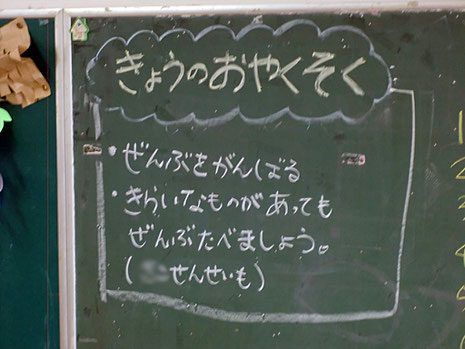 きょうのおやくそく
・ぜんぶをがんばる
・きらいなものがあっても
ぜんぶたべましょう。
(せんせいも)
1
2
3